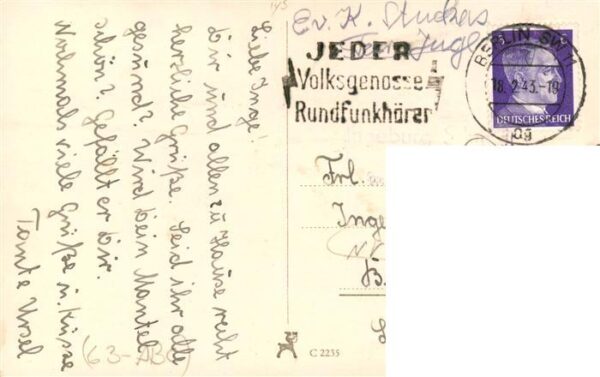 Liebe Inge!
Dir und allen zu Hause recht
herzliche Grüße. Seid ihr alle
gesund? Wird Dein Mantel
schön? Gefällt er Dir.
Nochmals viele Grüße u. Küsse
Tante Ursel
(63-ABC)
Ev. K.
JEDER
Volksgenosse
Rundfunkhörer
BERLIN SW 11
18.2.43.-19
DEUTSCHES REICH
Frl.
Inge
C 2235